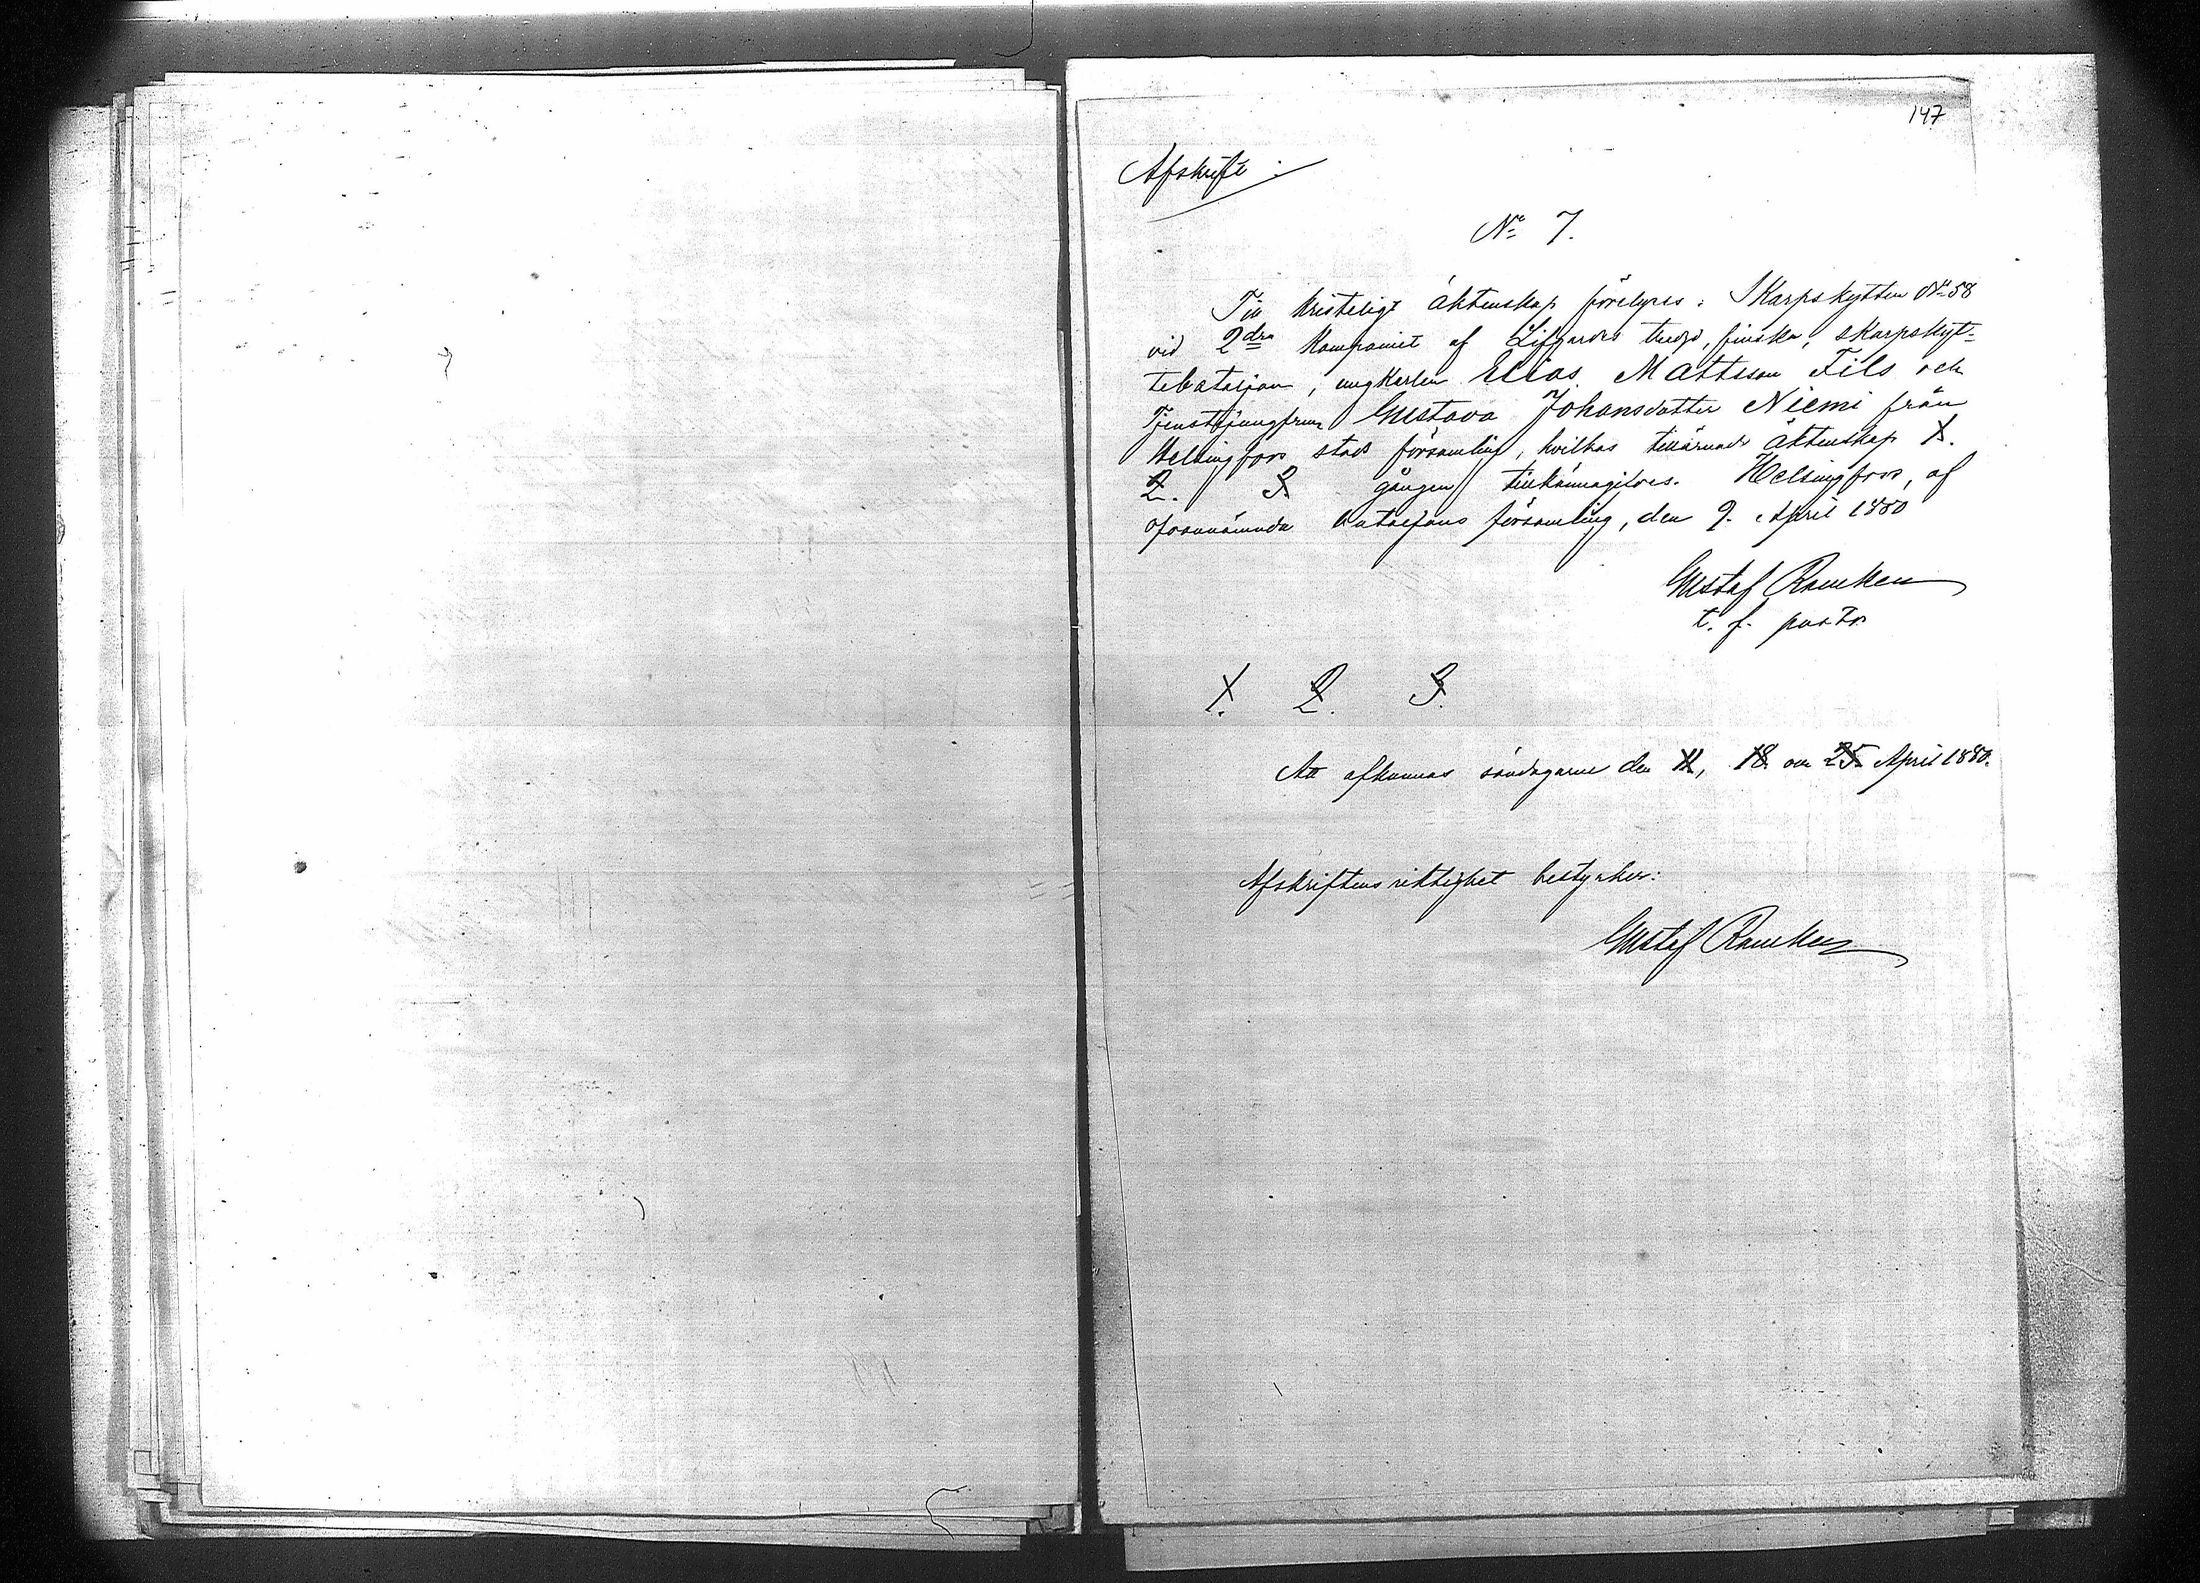 147
Afskrift.
No 7.
Till kristeligt äktenskap förelyses: Skarpskytten No 58
vid 2dra Kompaniet af Lifgardes tredje, finska, skarpskyt-
tebataljon, ungkarlen Elias Mattsson Fils och
Tjenstejungfrun Gustava Johansdotter Niemi från
Helsingfors stads församling, hvilkas tillärnade äktenskap 1.
2. 3 gången tillkännagifves. Helsingfors, af
ofvannämnda bataljons församling, den 9. April 1880
Gustaf Rancken
t. f. pastor
1. 2. 3.
Att afkunnas söndagarne den 11, 18. och 25. April 1880.
Afskriftens riktighet bestyrker:
Gustaf Rancken